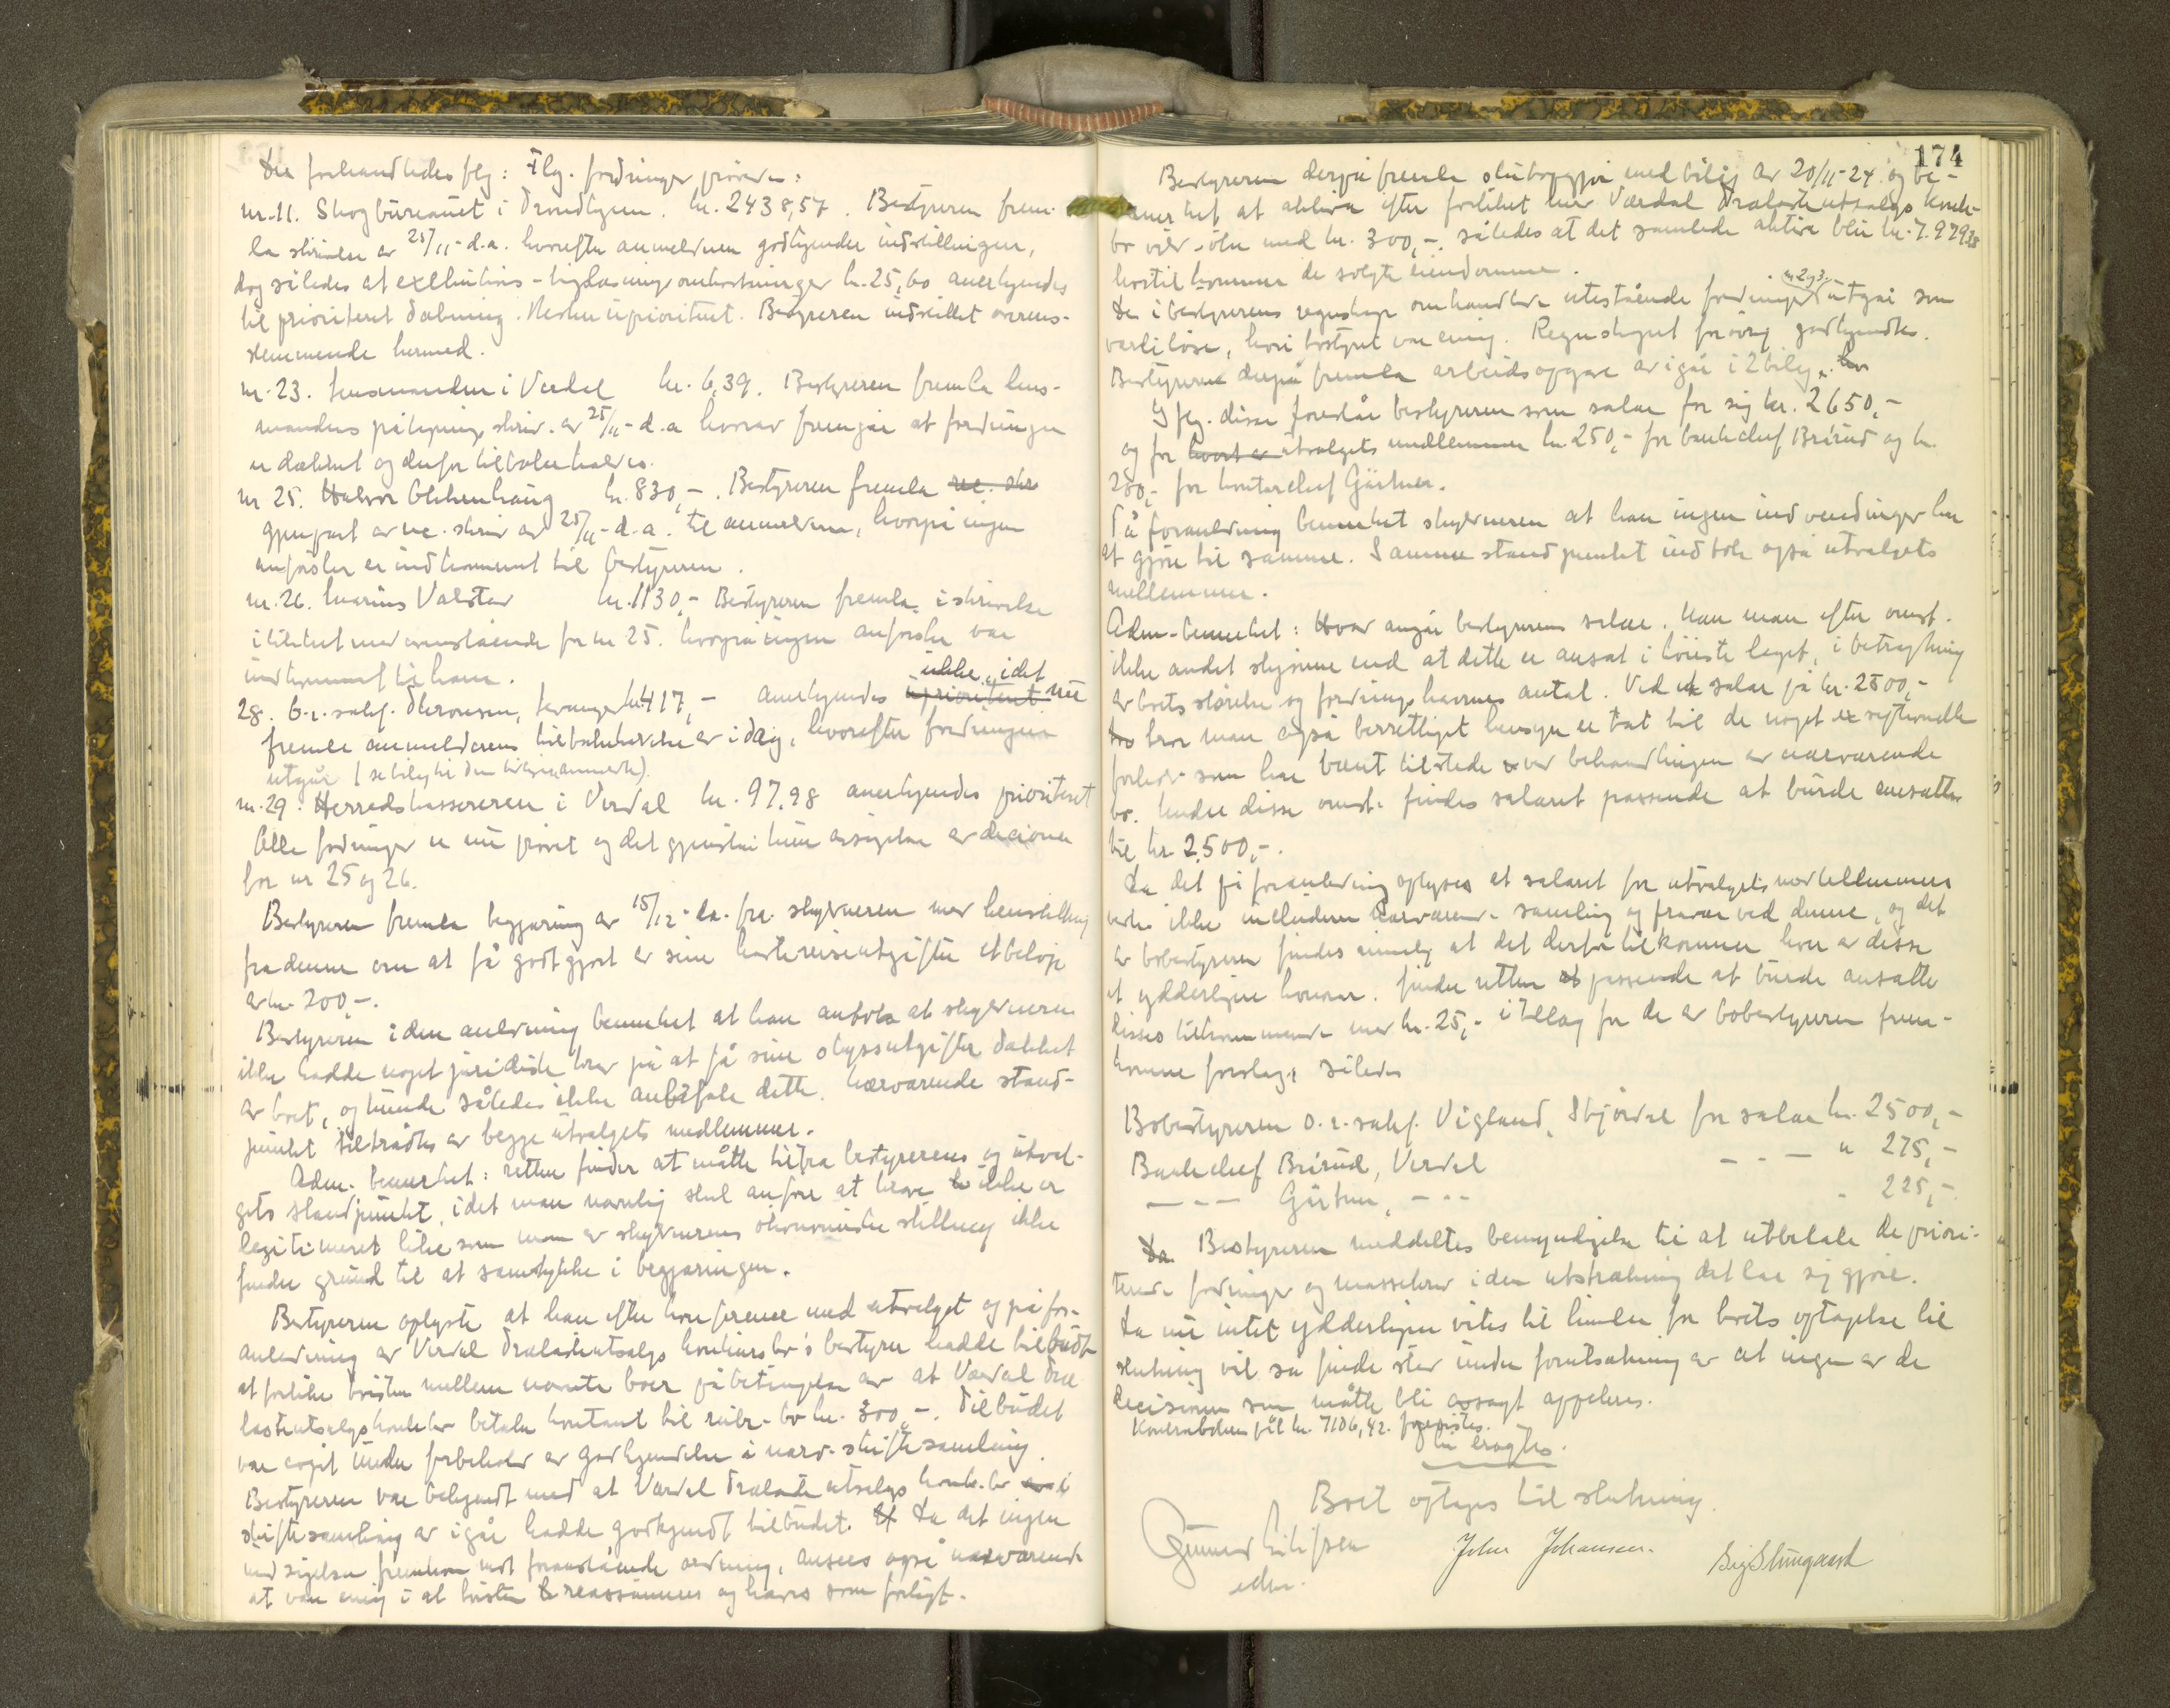 Der forhandledes flg: Flg. fordringer prøvedes:
nr. 11. Skogbureauet i Trondhjem. kr. 2438,57. Bestyreren frem-
la skrivelse av 25/11- d.a. hvorefter anmelderen godkjender indstillingen,
dog således at exekutions- omkostninger kr. 25,60 anerkjendes
til prioritert dækning. Resten uprioritert. Bestyreren indstillet overens-
stemmende hermed.
nr. 23. Lensmanden i Verdal kr. 6,39. Bestyreren fremla lens-
mandens påtegning skriv. av 25/11- d.a. hvorav fremgår at fordringen
er dækket og derfor tilbakekaldes.
nr. 25. Halvor kr. 830,-. Bestyreren fremla rec. skr
gjenpart av rec. skriv av 25/11- d.a. til anmelderen, hvorpå ingen
anførsler er indkommet til bestyreren.
nr. 26. Marius Valstad kr. 1130,- Bestyreren fremla skrivelse
likelydende med ovenstående for nr 25. hvorpå ingen anførsler var
indkommet til ham.
28. O.r.sakf. Thronsen, Levanger kr. 417,- anerkjendes uprioritert ikke, idet nu
fremla anmelderens tilbakekaldelse av idag, hvorefter fordringen
utgår (se bilag til den tidligere anmerkn).
nr. 29. Herredskassereren i Verdal kr. 97,98 anerkjendes prioritert
Alle fordringer er nu prøvet og det gjenstår kun avsigelse av decisioner
for nr 25 og 26.
Bestyreren fremla begjæring av 15/12- da. fra skyldneren med henstilling
fra denne om at få godtgjort av sine kost & reiseutgifter et beløp
av kr. 200,-.
Bestyreren i den anledning bemerket at han antok at skyldneren
ikke hadde noget juridisk krav på at få sine skyssutgifter dækket
av boet, og kunde således ikke anbefale dette. Nærværende stand-
punkt tiltrådtes av begge utvalgets medlemmer.
Adm. bemerket: retten finder at måtte tiltræ bestyrerens og utval-
gets standpunkt, idet man nemlig skal anføre at krav ikke er
legitimeret like som man av skyldnerens økonomiske stilling ikke
finder grund til at samtykke i begjæringen.
Bestyreren oplyste at han efter konferense med utvalget og på for-
anledning av Verdal Trælastutsalgs konkursbo's bestyrer hadde tilbudt
at forlike tvisten mellem nævnte boer på betingelse av at Værdal Træ
lastutsalgs konkursbo betaler kontant til nærv. bo kr. 300,-. Tilbudet
var avgit under forbehold av godkjendelse i nærv. skiftesamling.
Bestyreren var bekjendt med at Værdal Trælastutsalgs konk. bo i
skiftesamling av igår hadde godkjendt tilbudet. Da det ingen
indsigelser fremkom mot foranstående ordning, ansees også nærværende
at være enig i at tvisten reassumeres og hæves som forligt.
174
Bestyreren derpå fremla sluttopgjør med bilag av 20/11-24. og be-
merket at aktiva efter forliket med Værdal Trælastutsalgs konk-
bo vil økes med kr. 300,-. således at det samlede aktiva blir kr. 7.979,38
hertil kommer de solgte eiendomme.
De i bestyrerens regnskap omhandlede utestående fordringer nr 2 og 3. utgår som
værdiløse, hvori bostyret var enig. Regnskapet forøvrig godkjendtes.
Bestyreren derpå fremla arbeidsopgave av igår i 2 bilag.
I flg. disse foreslår bestyreren som salær for sig kr. 2650,-
og for hvert av utvalgets medlemmer kr. 250,- for bankchef Brirud og kr.
200,- for kontorchef Gärtner.
På foranledning bemerket skyldneren at han ingen indvendinger har
at gjøre til samme. Samme standpunktet indtok også utvalgets
medlemmer.
Adm. bemerket: Hvad angår bestyrerens salær. kan man efter omst.
ikke andet skjønne end at dette er ansat i høieste laget, i betragtning
av boets størrelse og fordringshavernes antal. Ved et salær på kr. 2500,-
tro bør man også berettiget hensyn er tat til de noget exceptionelle
forhold som har været tilstede ved behandlingen av nærværende
bo. Under disse omst. findes salæret passende at burde ansættes
til kr. 2500,-.
Da det på foranledning oplyses at salæret for utvalgets medlemmers
vedk. ikke inkluderer nærværende samling og fravær ved denne, og det
av bobestyreren findes rimelig at det derfor tilkommer hver av disse
et ydderligere honorar. finder retten passende at burde ansætte
disses tilkommende med kr. 25,- i tillæg for de av bobestyreren frem-
komne forslag, således
Bobestyreren o.r.sakf. Vigland, Stjørdal for salær kr. 2500,-
Bankchef Brirud, Verdal - - - " 275,-
- - - Gärtner, - - - " 225,-
Da Bestyreren meddeltes bemyndigelse til at utbetale de priori-
terede fordringer og massekrav i den utstrækning det lar sig gjøre.
Da nu intet ydderligere vites til hinder for boets optagelse til
slutning vil sa finde sted under forutsætning av at ingen av de
decisioner som måtte bli avsagt appelleres.
Kontrabøker pål. kr. 7106,42. forevistes.
Blev eragtet.
Boet optages til slutning.
Gunnar Eilifsen
edm.
John Johansen.
Sig Stungaard